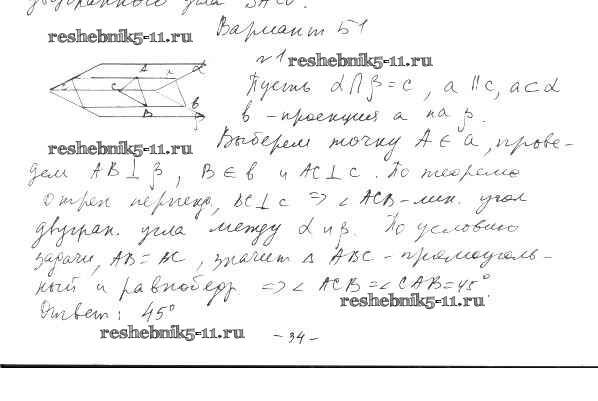 двугранного угла
reshebnik5-11.ru
Вариант 51
№1
reshebnik5-11.ru
Пусть α∩β=c, a∥c, a⊂α
в - проекция a на β.
reshebnik5-11.ru
Выберем точку A∈a, прове-
дем AB⊥β, B∈в и AC⊥c. По теореме
о трех перпенд. BC⊥c ⇒ ∠ACB-лин. угол
двугран. угла между α и β. По условию
задачи, AB=BC, значит △ABC - прямоуголь-
ный и равнобедр ⇒ ∠ACB=∠CAB=45°
reshebnik5-11.ru
Ответ: 45°
reshebnik5-11.ru
-34-